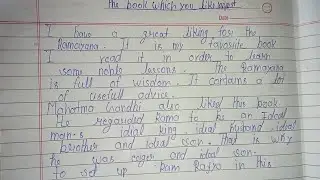 The book which you like most
Date
I have a great liking for the
Ramayana. It is my favorite book
I read it in order to learn
some noble lessons. The Ramayana
is full of wisdom. It contains a lot
of usefull advice.
Mahatma Gandhi also liked this book
He regarded Rama to be an Ideal
man-s idial king, idial husband idial
brother and idial son. That is why
he was eager and ideal son.
to set up Ram Rajya in this